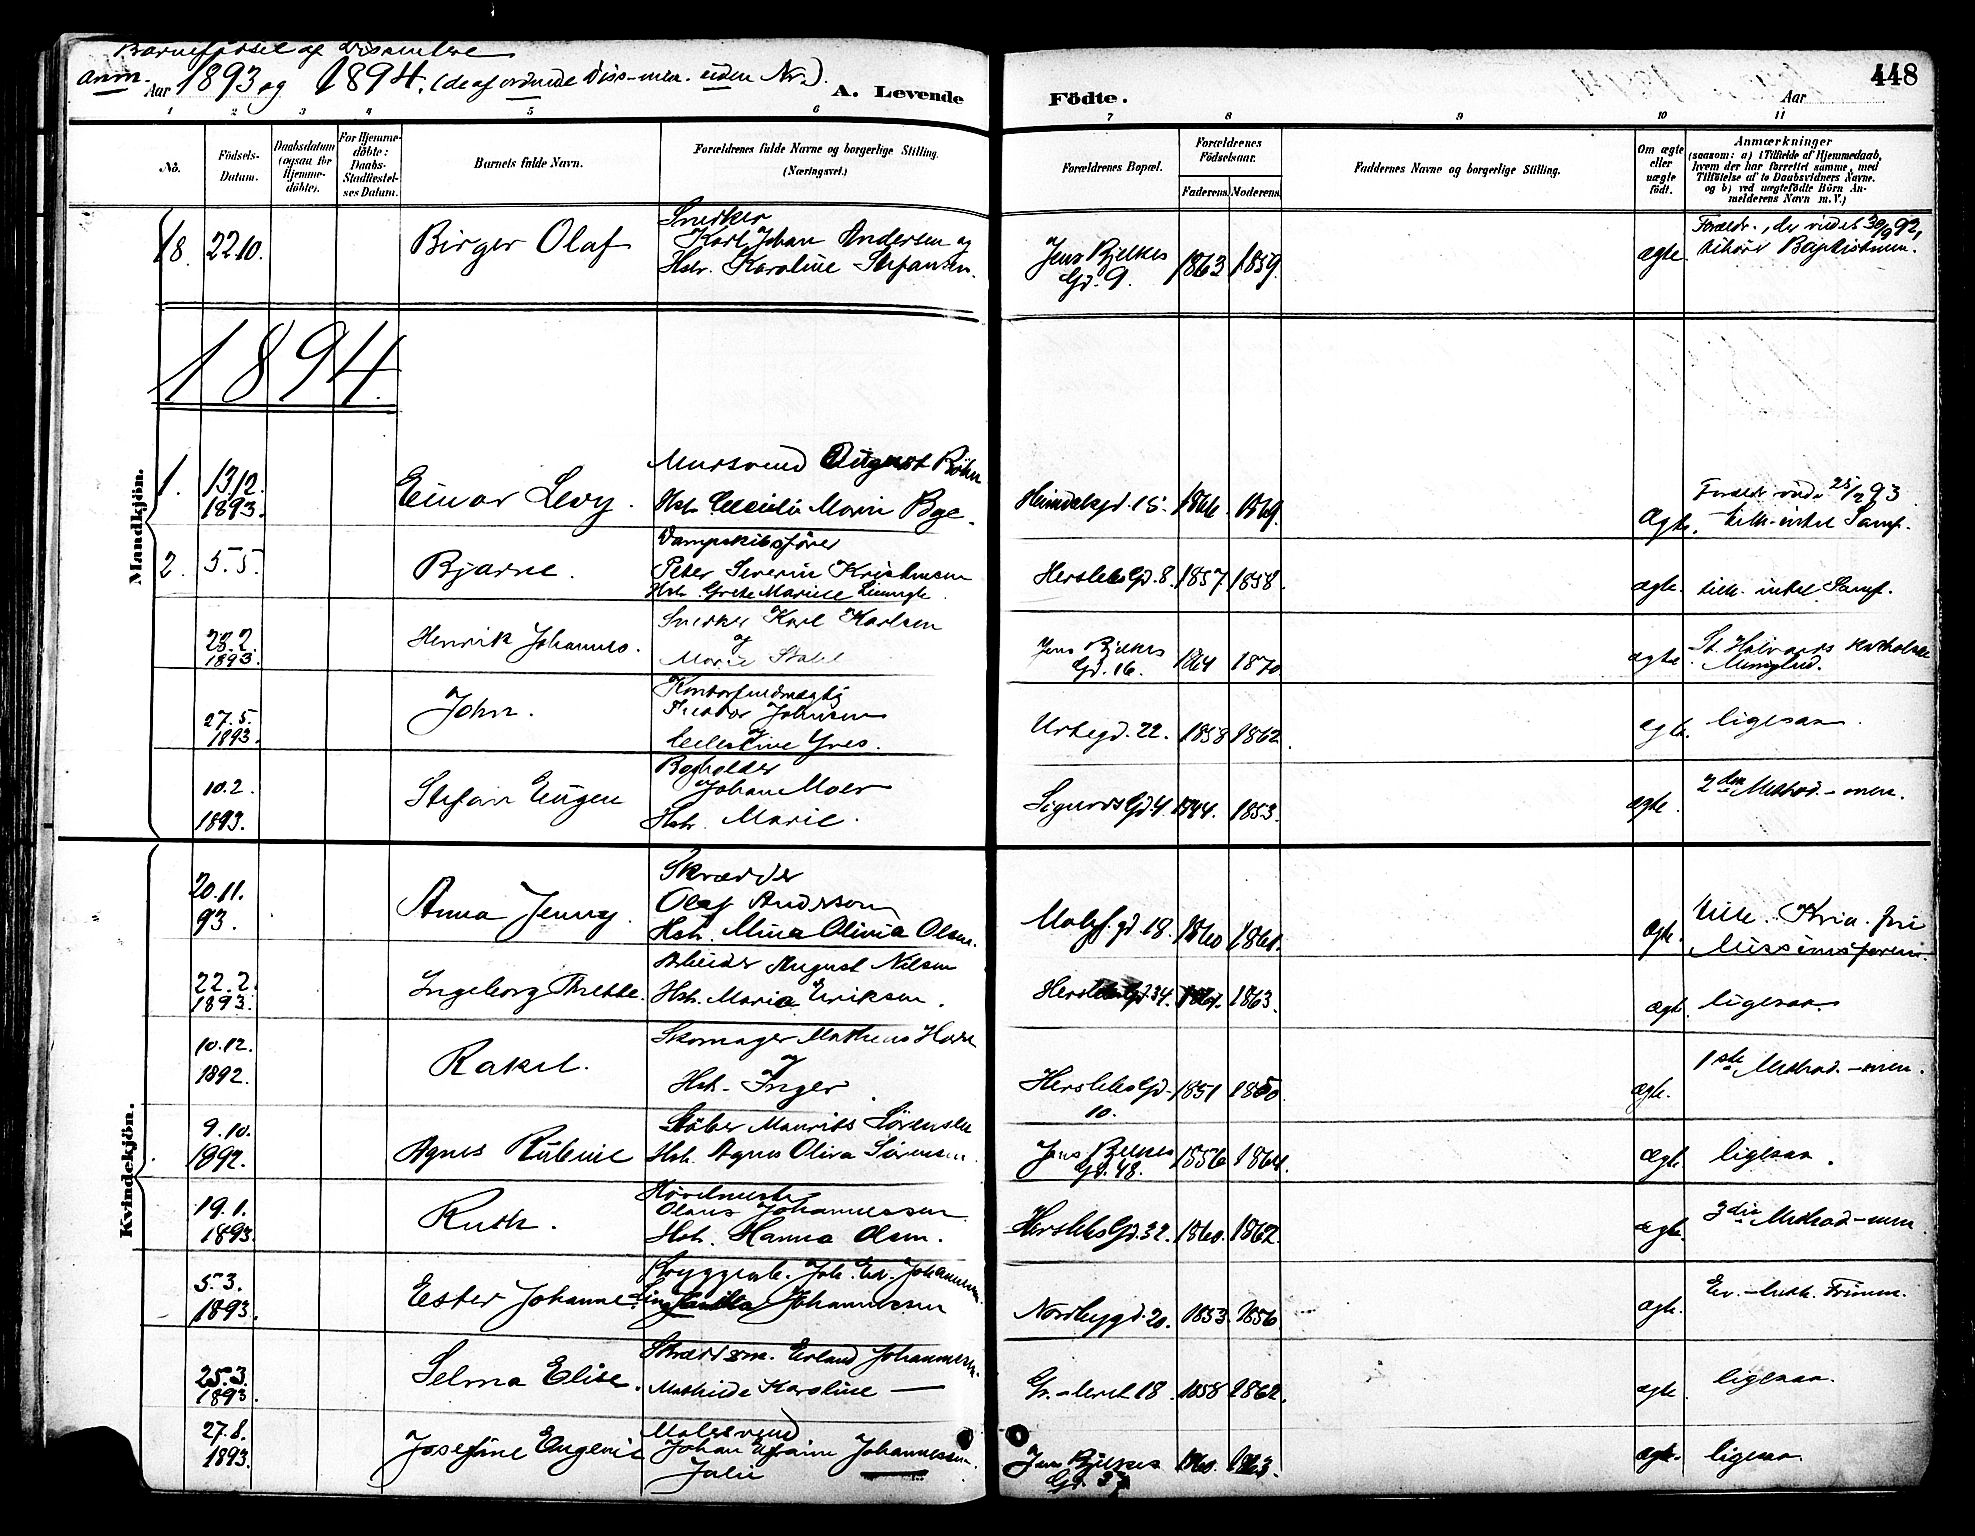 Barnefødsel af Dissentere
anm. Aar 1893 og 1894. (de af ordnede Diss-men. uden Nr.).
A. Levende Födte.
448
Aar
1 2 3 4 5 6 7 8 9 10 11
No.
Födsels-Datum.
Daabsdatum (ogsaa for Hjemme-döbte).
For Hjemme-döbte: Daabs-Stadfæstel-ses Datum.
Barnets fulde Navn.
Forældrenes fulde Navne og borgerlige Stilling. (Næringsvei.)
Forældrenes Bopæl.
Forældrenes Födselsaar.
Faderens. Moderens.
Faddernes Navne og borgerlige Stilling.
Om ægte eller uægte født.
Anmærkninger
(saasom: a) i Tilfælde af Hjemmedaab, hvem der har forrettet samme, med Tilföielse af to Daabsvidners Navne, og b) ved uægtefödte Börn An-melderens Navn m. V.)
18. 22 10. Birger Olaf
Snedker
Karl Johan Andersen og
Hstr. Karoline Stefansen.
Jens Bjelkes Gd. 9. 1863 1859. ægte.
Foræld., der viedes 30/9 92, tilhører Baptistmen.
1894.
Mandkjön.
1. 13/12. 1893. Einar Levy.
Mursvend August
Hstr. Cecilie Marie Bye.
Heimdalsgd. 15. 1866. 1869. Ægte.
Foræld. vied. 25/2 93
tilh. intet Samf.
2. 5.5. Bjarne.
Dampskibsfører
Peter Severin Kristensen
Hstr. Grete Marie
Herslebs Gd. 8. 1857. 1858. ægte. tilh. intet Samf.
28.2. 1893. Henrik Johannes.
Snedker Karl Karlsen
og
Marie Stahl
Jens Bjelkes Gd. 16. 1864 1870 ægte
St. Halvards katholske Menighed.
27.5. 1893. John.
Kontorfuldmægtig
Theodor Johnsen
og
Celestine Yves.
Urtegd. 22. 1858 1862. ægte. ligesaa.
10.2. 1893. Stefan Eugen
Bogholder
Johan Moer
Hstr. Marie.
Sigurds Gd. 4. 1844. 1853. ægte. 2den Method.-men.
Kvindekjön.
20.11. 93. Anna Jenny.
Skrædder
Olaf Andersson
Hstr. Mina Olivia Olsen.
18. 1860 1861. ægte.
tilh. Kria. fri Missionsforen.
22.2. 1893. Ingeborg
Arbeider August Nilsen
Hstr. Maria Eriksen.
Herslebs Gd. 34. 1863. ægte ligesaa
10.12. 1892. Rakel.
Skomager Matheus
og
Hstr. Inger.
Herslebs Gd. 10. 1851 1850 ægte. 1ste Method.-men.
9.10. 1892. Agnes Rubine
Støber Maurits Sørensen
Hstr. Agnes Oliva Sørensen.
Jens Bjelkes Gd. 48. 1856 1864. ægte. ligesaa.
19.1. 1893. Ruth.
Høvelmester
Olaus Johannessen
Hstr. Hanna Olsen.
Herslebs Gd. 32. 1860. 1862. ægte. 3die Method-men
5.3. 1893. Ester Johanne
Bryggearb. Joh. Ed. Johannessen
Johannessen
Nordbygd. 20. 1853. 1856. ægte. Ev.-luth. Frimen.
25.3. 1893. Selma Elise.
Skræddsm. Erland Johannessen.
Mathilde Karoline —
Gr.-leret 18. 1858 1862. ægte ligesaa.
27.8. 1893. Josefine Eugenie
Malersvend
Johan Efraim Johannessen.
Julie
Jens Bjelkes Gd. 1860. 1863. ægte. ligesaa